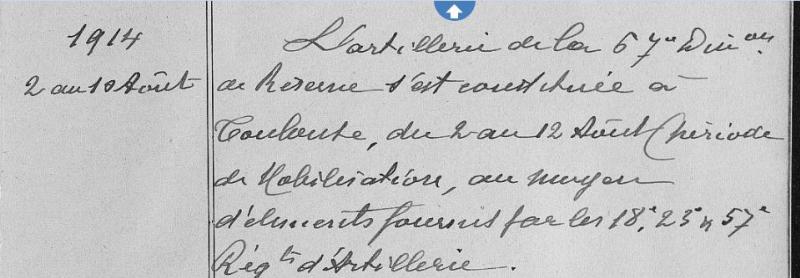 1914
2 au 10 Août
L'artillerie de la 67e Dion
de Réserve s'est constituée à
Toulouse, du 2 au 12 Août (Période
de Mobilisation, au moyen
d'éléments fournis par les 18e, 23e & 57e
Régts d'Artillerie.